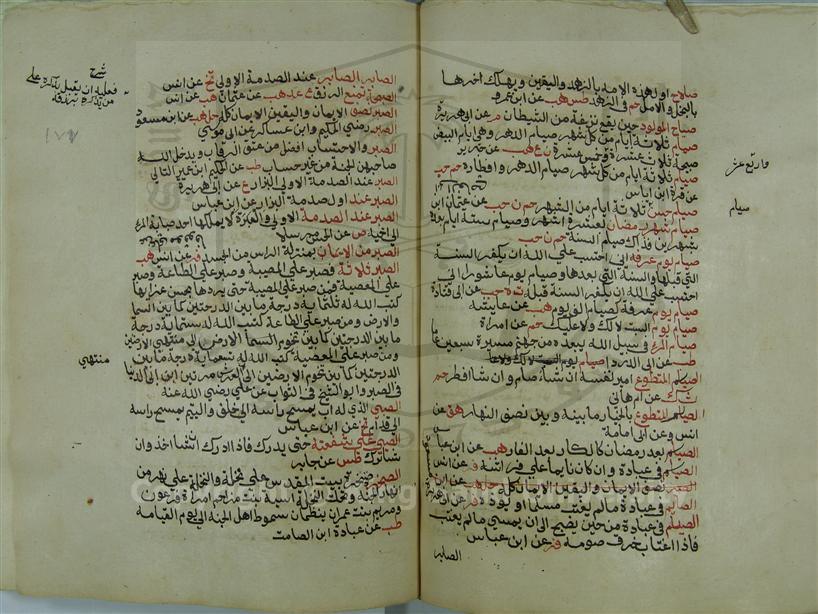 صلاح اول هذه الامة بالزهد واليقين ويهلك اخرها
بالبخل والامل حم في الزهد طس هب عن ابن عمرو
صياح المولود حين يقع نزغة من الشيطان م عن ابي هريرة
صيام ثلاثة ايام من كل شهر صيام الدهر وهي ايام البيض
صبيحة ثلاث عشرة وخمس عشرة ن ع هب عن جرير
واربع عشر
صيام ثلاثة ايام من كل شهر صيام الدهر وافطاره حم حب
عن قرة ابن اياس
صيام حسن ثلاثة ايام من الشهر حم ن حب عن عثمان ابن
صيام
صيام شهر رمضان بعشرة اشهر وصيام ستة ايام بعده
بشهرين فذاك صيام السنة حم ن حب
صيام يوم عرفة اني احتسب على الله ان يكفر السنة
التي قبلها والسنة التي بعدها وصيام يوم عاشورا اني
احتسب على الله ان يكفر السنة قبله ت ه حب عن ابي قتادة
صيام يوم عرفة كصيام الف يوم هب عن عايشه
صيام يوم السبت لا لك ولا عليك حم عن امراة
صيام المرء في سبيل الله يبعده من جهنم مسيرة سبعين عاما
طب عن ابي الدرداء
الصيام المتطوع امير نفسه ان شاء صام وان شا افطر حم
ت ك عن ام هاني
الصايم المتطوع بالخيار ما بينه وبين نصف النهار هق عن
انس وعن ابي امامة
الصيام بعد رمضان كالكار بعد الفار هب عن ابن عباس
الصيام في عبادة وان كان نايما على فراشه فر عن انس
الصبر نصف الايمان واليقين الايمان كله حل هب عن ابن
الصايم في عبادة ما لم يغتب مسلما او يوذه فر عن ابي هريرة
الصيام في عبادة من حين يصبح الى ان يمسي ما لم يغتب
فاذا اغتاب خرق صومه فر عن ابن عباس
الصابر
الصابر الصابر عند الصدمة الاولى تخ عن انس
شرح
الصبحة تمنع الرزق عم عد هب عن عثمان هب عن انس
الصبر نصف الايمان واليقين الايمان كله حل هب عن ابن مسعود
الصبر رضي الحكيم وابن عساكر عن ابي موسى
الصبر والاحتساب افضل من عتق الرقاب ويدخل الله
صاحبهن الجنة من غير حساب طب عن الحكيم ابن عمير الثمالي
الصبر عند الصدمة الاولى البزار ع عن ابي هريرة
الصبر عند اول صدمة البزار عن ابن عباس
الصبر عند الصدمة الاولى والعبرة لا يملكها احد صبابة المرء
الى اخيه ص عن الحسن مرسلا
الصبر من الايمان بمنزلة الراس من الجسد فر عن انس هب
الصبر ثلاثة فصبر على المصيبة وصبر على الطاعة وصبر
على المعصية فمن صبر على المصيبة حتى يردها بحسن عزائها
كتب الله له ثلثماية درجة ما بين الدرجتين كما بين السما
والارض ومن صبر على الطاعة كتب الله له ستماية درجة
ما بين الدرجتين كما بين تخوم السما الارض الى منتهى الارضين
ومن صبر على المعصية كتب الله له تسعماية درجة ما بين
منتهى
الدرجتين كما بين تخوم الارضين الى العرش مرتين ابن ابي الدنيا
في الصبر وابو الشيخ في الثواب عن علي رضي الله عنه
الصبي الذي له اب يمسح راسه الى خلف واليتيم يمسح راسه
الى قدام تخ عن ابن عباس
الصبي على شفعته حتى يدرك فاذا ادرك ان شا اخذ وان
شا ترك طس عن جابر
الصخرة صخرة بيت المقدس على نخلة والنخلة على نهر من
انهار الجنة وتحت النخلة اسية بنت مزاحم امراة فرعون
ومريم بنت عمران ينظمان سموط اهل الجنة الى يوم القيامه
طب عن عبادة ابن الصامت